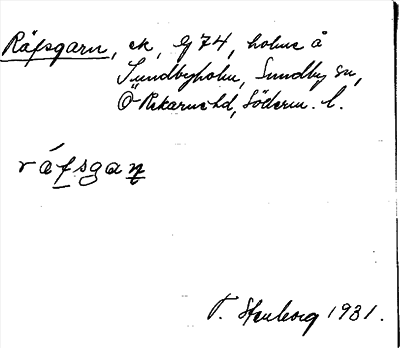 Räfsgarn, ek, G 74, holme å
Sundbyholm, Sundby sn,
Ö Rekarne hd, Söderm. l.
ráfsgaṉ
T. Stenborg 1931.